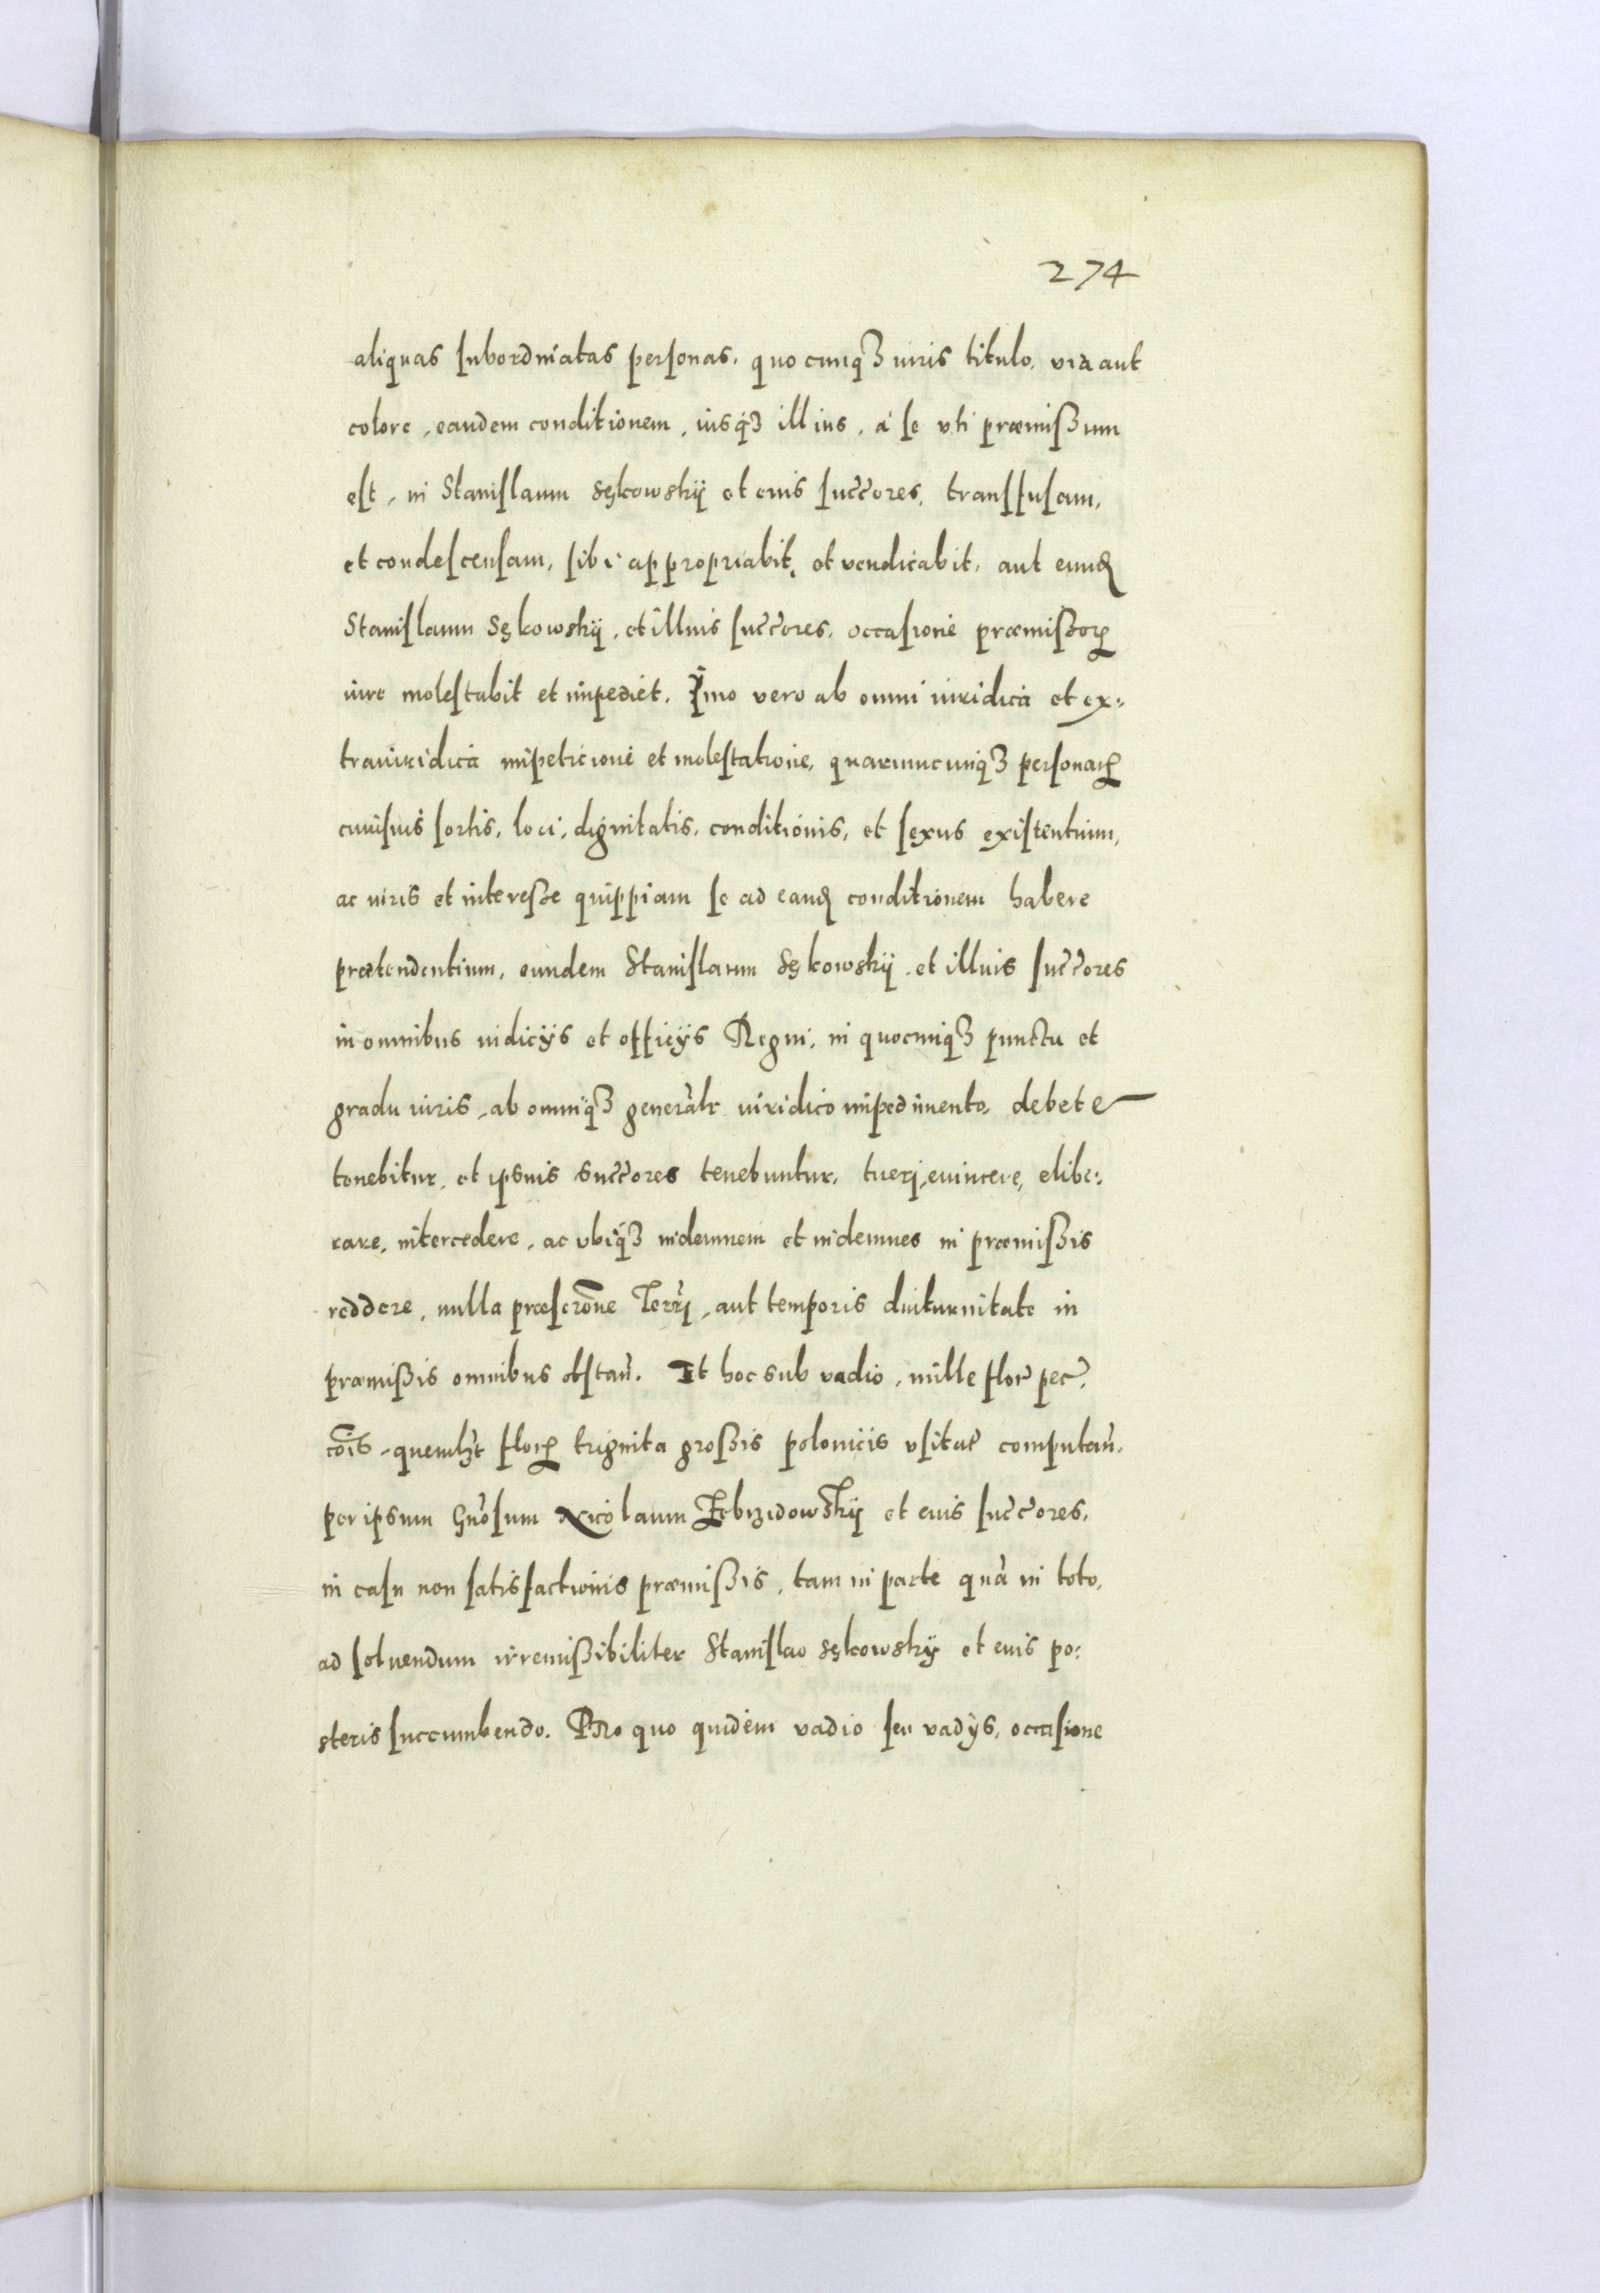 274
aliquas subordinatas personas, quocunqꝫ iuris titulo, via aut
colore, eandem conditionem, iusqꝫ illius, á se vti præmissum
est, in Stanislaum Sękowskÿ et euis succores, transfusam,
et condescensam, sibi appropriabit, et vendicabit, aut eund
Stanislaum Sękowskÿ, et illius succores, occasione præmissorꝝ
iure molestabit et impediet. Imo vero ab omni iuridica et ex:
trauiridica impeticione et molestatione, quarumcunqꝫ personarꝝ
cuiusuis sortis, loci, dignitatis, conditionis, et sexus existentium,
ac iuris et interesse quippiam se ad eand conditionem habere
prætendentium, eundem Stanislaum Sękowskÿ et illius succores
in omnibus iudicÿs et officÿs Regni, in quocunqꝫ punctu et
gradu iuris, ab omniqꝫ generali iuridico impedimento, debet et
tenebitur, et ipsius succores tenebuntur, tueri, euincere, elibe:
rare, intercedere, ac vbiqꝫ indemnem et indemnes in præmissis
reddere, nulla præscrone Terri, aut temporis diuturnitate in
præmissis omnibus obstan. Et hoc sub vadio, mille flor pec
cois, quemlꝫt florꝝ triginta grossis polonicis vsitat computan.
per ipsum Gnosum Nicolaum Zebrzidowskÿ et eius succores,
in casu non satisfactionis præmissis, tam in parte quà in toto,
ad soluendum irremissibiliter Stanislao Sękowskÿ et euis po:
steris succumbendo. Pro quo quidem vadio seu vadÿs, occasione